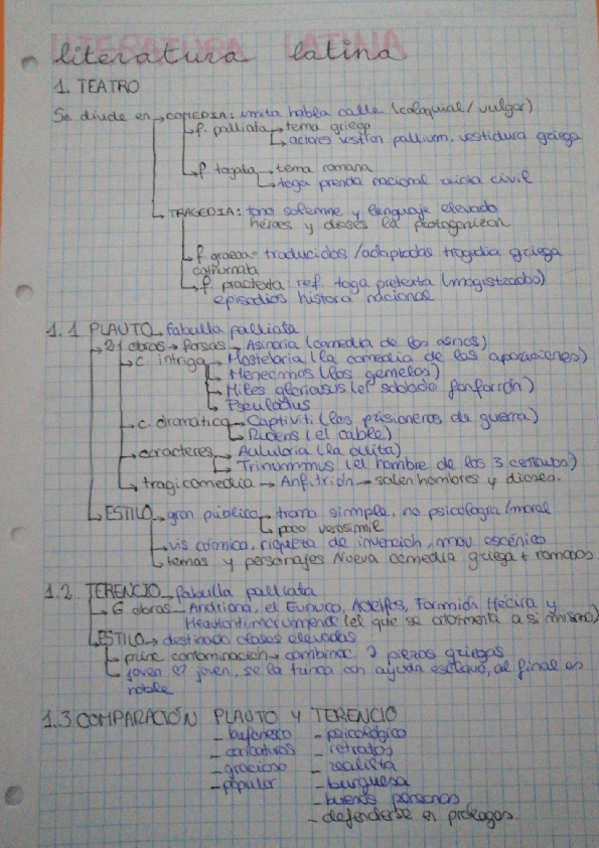 LITERATURA LATINA
literatura latina
1. TEATRO
Se divide en → COMEDIA: imita habla calle (coloquial / vulgar)
f. palliata → tema griego
actores vestían pallium, vestidura griega
f. togata → tema romana
toga prenda nacional civil
TRAGEDIA: tono solemne y lenguaje elevado
héroes y dioses la protagonizan
f. graeca = traducidas / adaptadas tragedia griega
f. praetexta: ref. toga pretexta (magistrados)
episodios historia nacional
1.1 PLAUTO → fabulla palliata
21 obras → farsas → Asinaria (comedia de los asnos)
c. intriga → Mostelaria (la comedia de las apariciones)
Menecmos (los gemelos)
Miles gloriosus (el soldado fanfarrón)
Pseudolus
c. dramática → Captiviti (los prisioneros de guerra)
Rudens (el cable)
caracteres → Aulularia (la ollita)
Trinummus (el hombre de los 3 centavos)
tragicomedia → Anfitrión → salen hombres y dioses.
ESTILO → gran público → trama simple, no psicología / moral
poco verosímil
vis cómica, riqueza de invención, mov. escénico
temas y personajes Nueva comedia griega + romanos
1.2 TERENCIO → fabulla palliata
6 obras → Andriana, el Eunuco, Adelfos, Formión, Hécira y
(el que se atormenta a si mismo)
ESTILO → destinado clases elevadas
princ. contaminación → combinac. 2 piezas griegas
joven ♡ joven, se la trinca con ayuda esclavo, al final es
noble
1.3 COMPARACIÓN PLAUTO Y TERENCIO
- bufonesco - psicológico
- caricaturas - retratos
- gracioso - realista
- popular - burguesa
- buenas personas
- defenderse en prólogos.